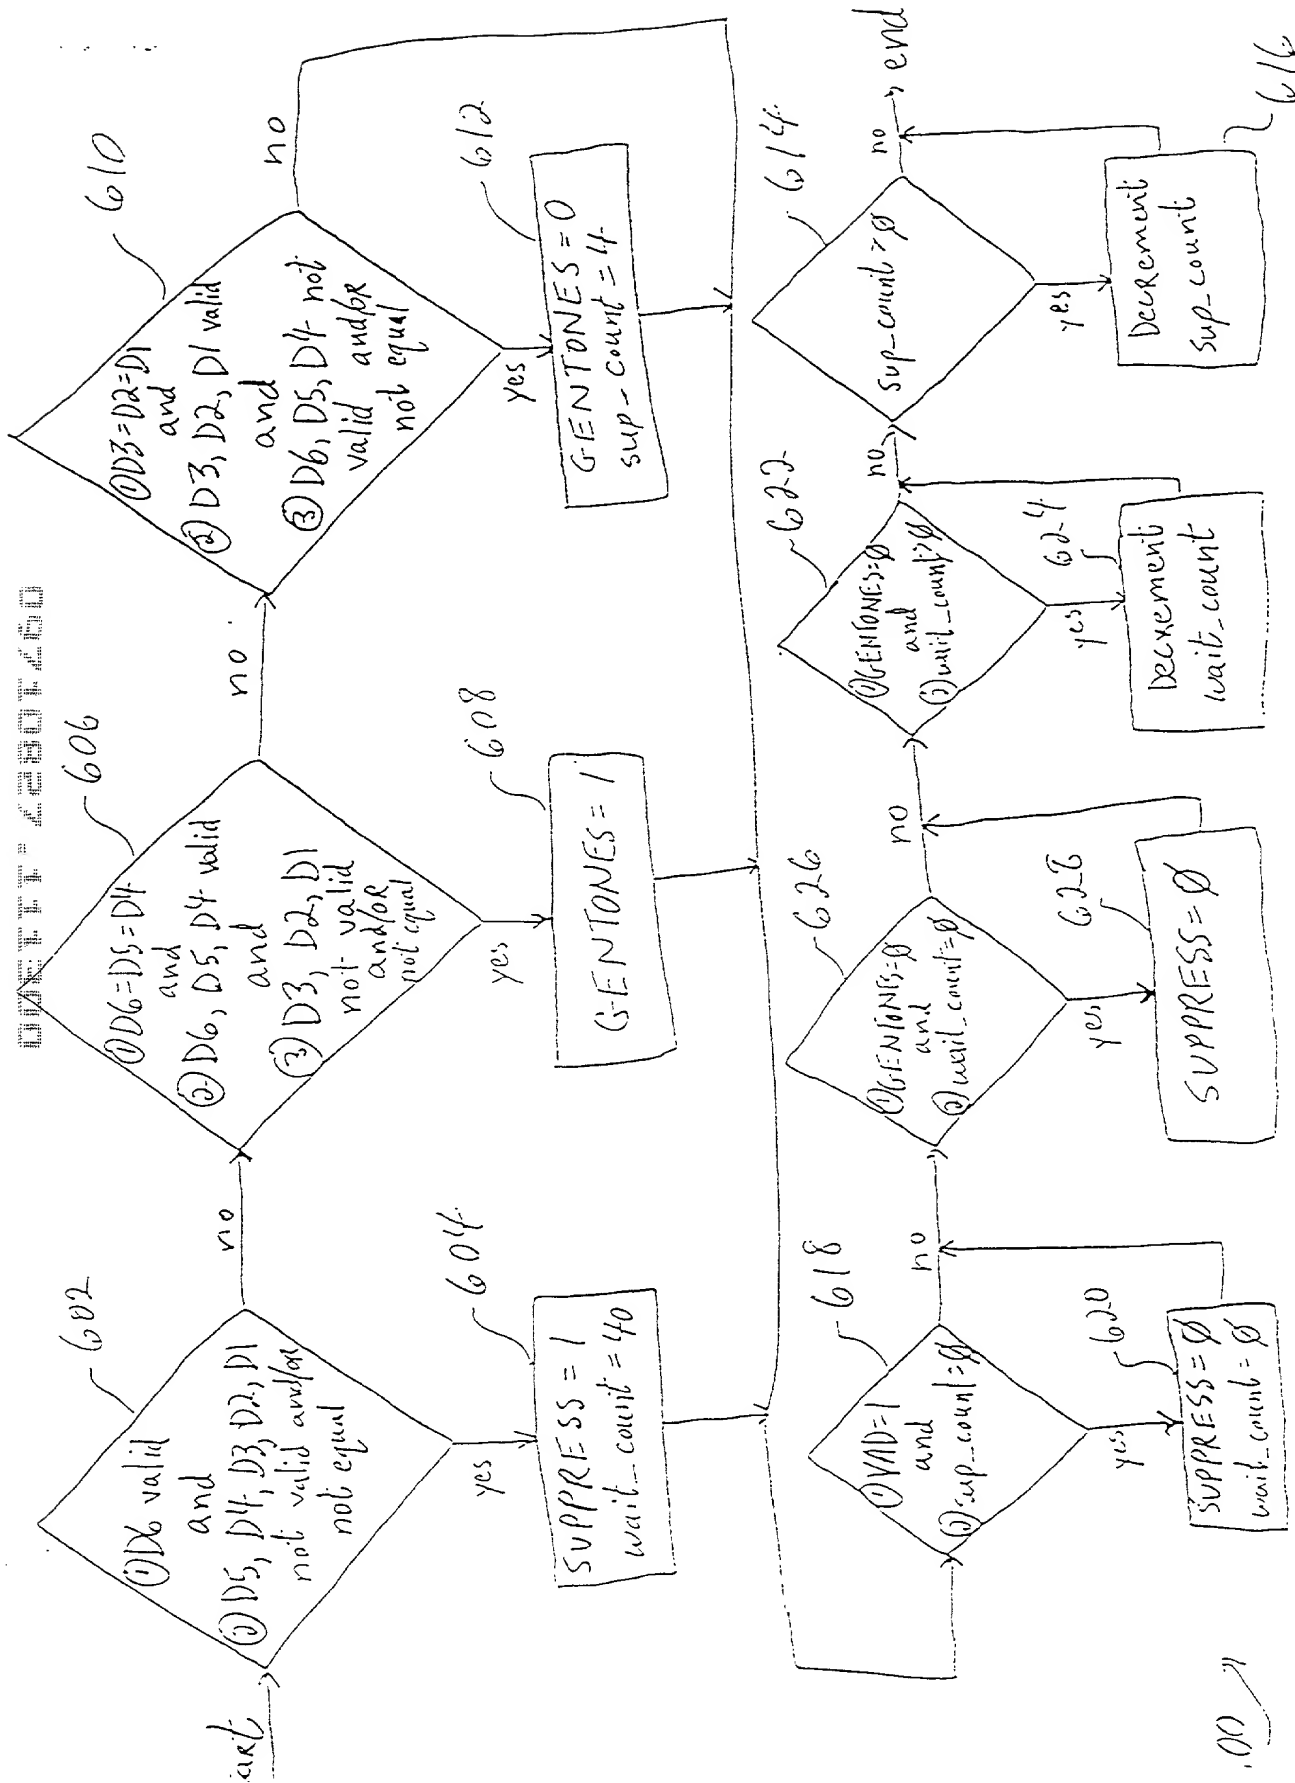 602
① D6 valid
and
② D5, D4, D3, D2, D1
not valid and/or
not equal
no
yes
604
SUPPRESS = 1
wait_count = 40
606
① D6=D5=D4
and
② D6, D5, D4 valid
and
③ D3, D2, D1
not valid
and/or
not equal
no
yes
608
GENTONES = 1
610
① D3=D2=D1
and
② D3, D2, D1 valid
and
③ D6, D5, D4 not
valid and/or
not equal
no
yes
612
GENTONES = 0
sup_count = 4
618
① VAD=1
and
② sup_count=Ø
no
yes
620
SUPPRESS = Ø
wait_count = Ø
626
① GENTONES=Ø
and
② wait_count=Ø
no
yes
628
SUPPRESS = Ø
622
① GENTONES=Ø
and
② wait_count>Ø
no
yes
624
Decrement
wait_count
614
sup_count>Ø
no
end
yes
Decrement
sup_count
616
00